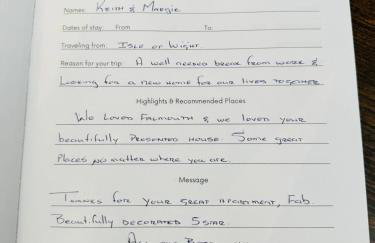 Names: Keith & Margie
Dates of stay: From To:
Traveling from: Isle of Wight
Reason for your trip: A well needed break from work &
Looking for a new home for our lives together
Highlights & Recommended Places
We Loved Falmouth & we loved your
beautifully presented house. Some great
Places no matter where you are.
Message
Thanks for your great apartment, Fab.
Beautifully decorated 5 star.